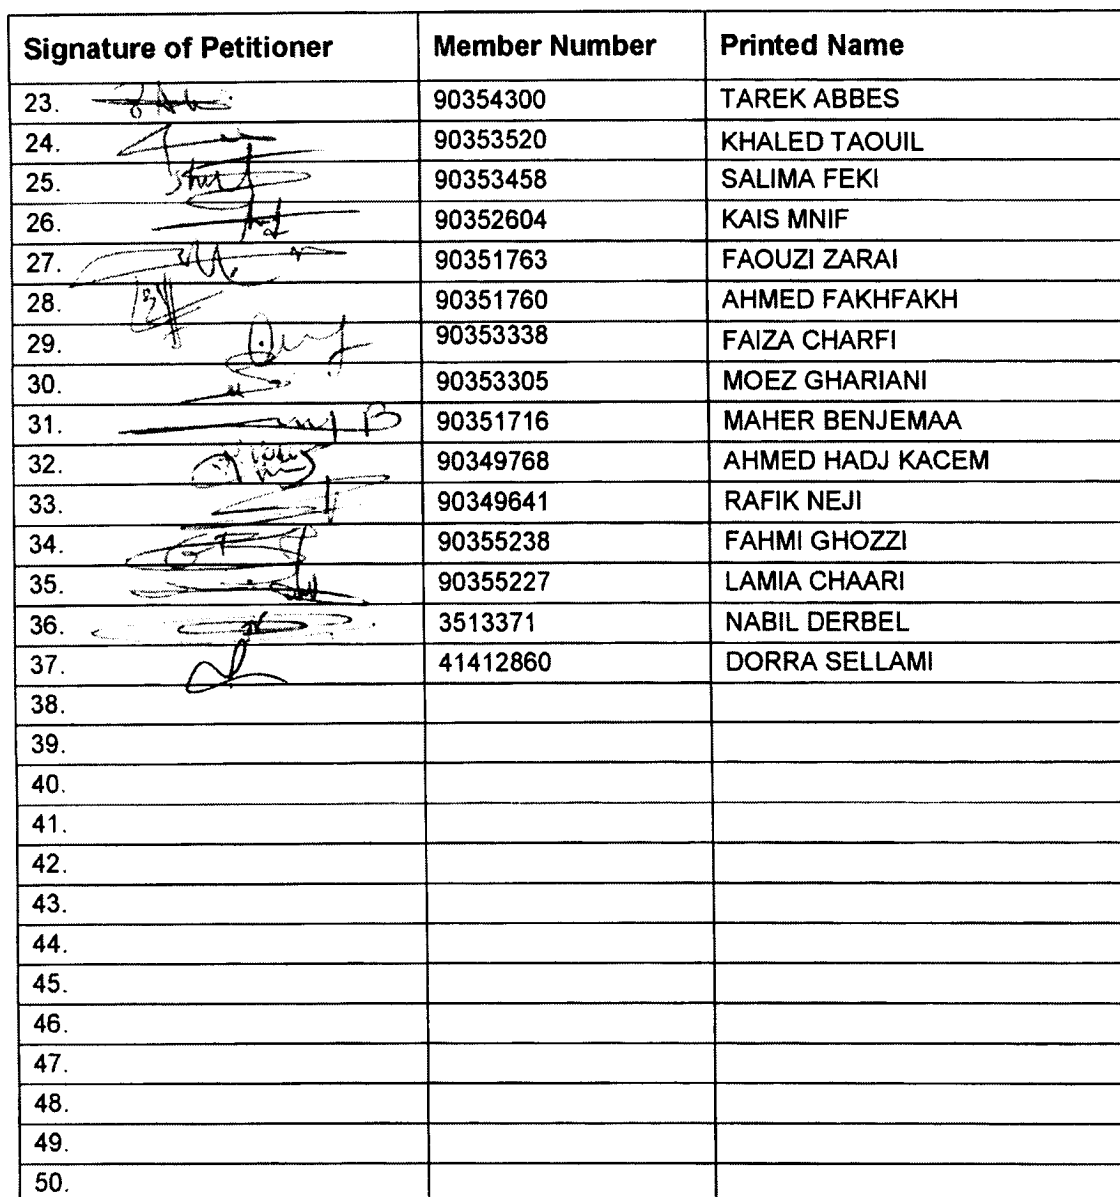 Signature of Petitioner Member Number Printed Name
23. 90354300 TAREK ABBES
24. 90353520 KHALED TAOUIL
25. 90353458 SALIMA FEKI
26. 90352604 KAIS MNIF
27. 90351763 FAOUZI ZARAI
28. 90351760 AHMED FAKHFAKH
29. 90353338 FAIZA CHARFI
30. 90353305 MOEZ GHARIANI
31. 90351716 MAHER BENJEMAA
32. 90349768 AHMED HADJ KACEM
33. 90349641 RAFIK NEJI
34. 90355238 FAHMI GHOZZI
35. 90355227 LAMIA CHAARI
36. 3513371 NABIL DERBEL
37. 41412860 DORRA SELLAMI
38.
39.
40.
41.
42.
43.
44.
45.
46.
47.
48.
49.
50.